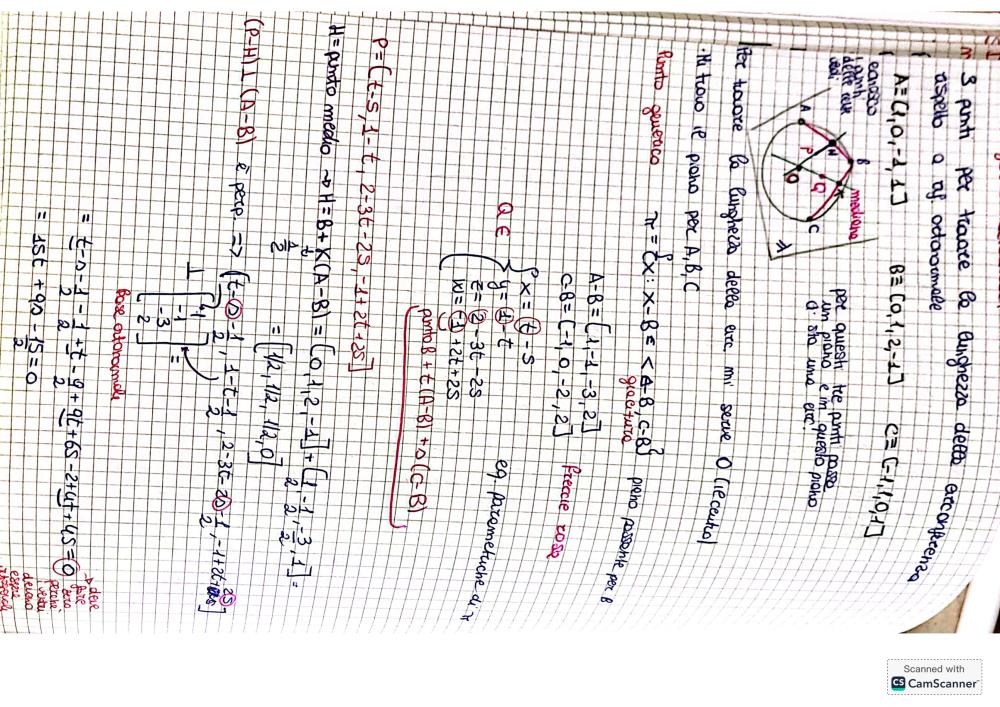 3 punti per trovare la lunghezza della circonferenza
rispetto a rif ortonormale
A≡[1,0,-1,1] B≡[0,1,2,-1] C≡[-1,1,0,1]
conosco
i punti
delle
A
N
B
mediana
P
Q
O
C
per questi tre punti passa
un piano e in questo piano
ci sta una
Per trovare la lunghezza della mi serve O (il centro)
·Mi trovo il piano per A,B,C
Punto generico
π = {x: x-B ∈ <A-B, C-B>}
giacitura
piano passante per B
A-B = (1,-1,-3,2]
C-B = (-1,0,-2,2]
freccie rosa
Q ∈
{ x = t - s
y = 1 - t
z = 2 - 3t - 2s
w = -1 + 2t + 2s
eq. parametriche di π
punto B + t(A-B) + s(C-B)
P = (t-s, 1-t, 2-3t-2s, -1+2t+2s]
H = punto medio → H = B + K(A-B) = (0,1,2,-1] + (1/2, -1/2, -3/2, 1] =
1/2
= (1/2, 1/2, 1/2, 0]
(P-H) ⊥ (A-B) è perp. => [t-s-1/2, 1-t-1/2, 2-3t-2s-1/2, -1+2t+2s]
⊥ [1
-1
-3
2] =
Base ortonormale
= t-s-1/2-1/2+t/2-9/2+9t+6s-2+4t+4s=0
= 15t + 9s - 15/2 = 0
deve
fare
zero
perché
i vettori
devono